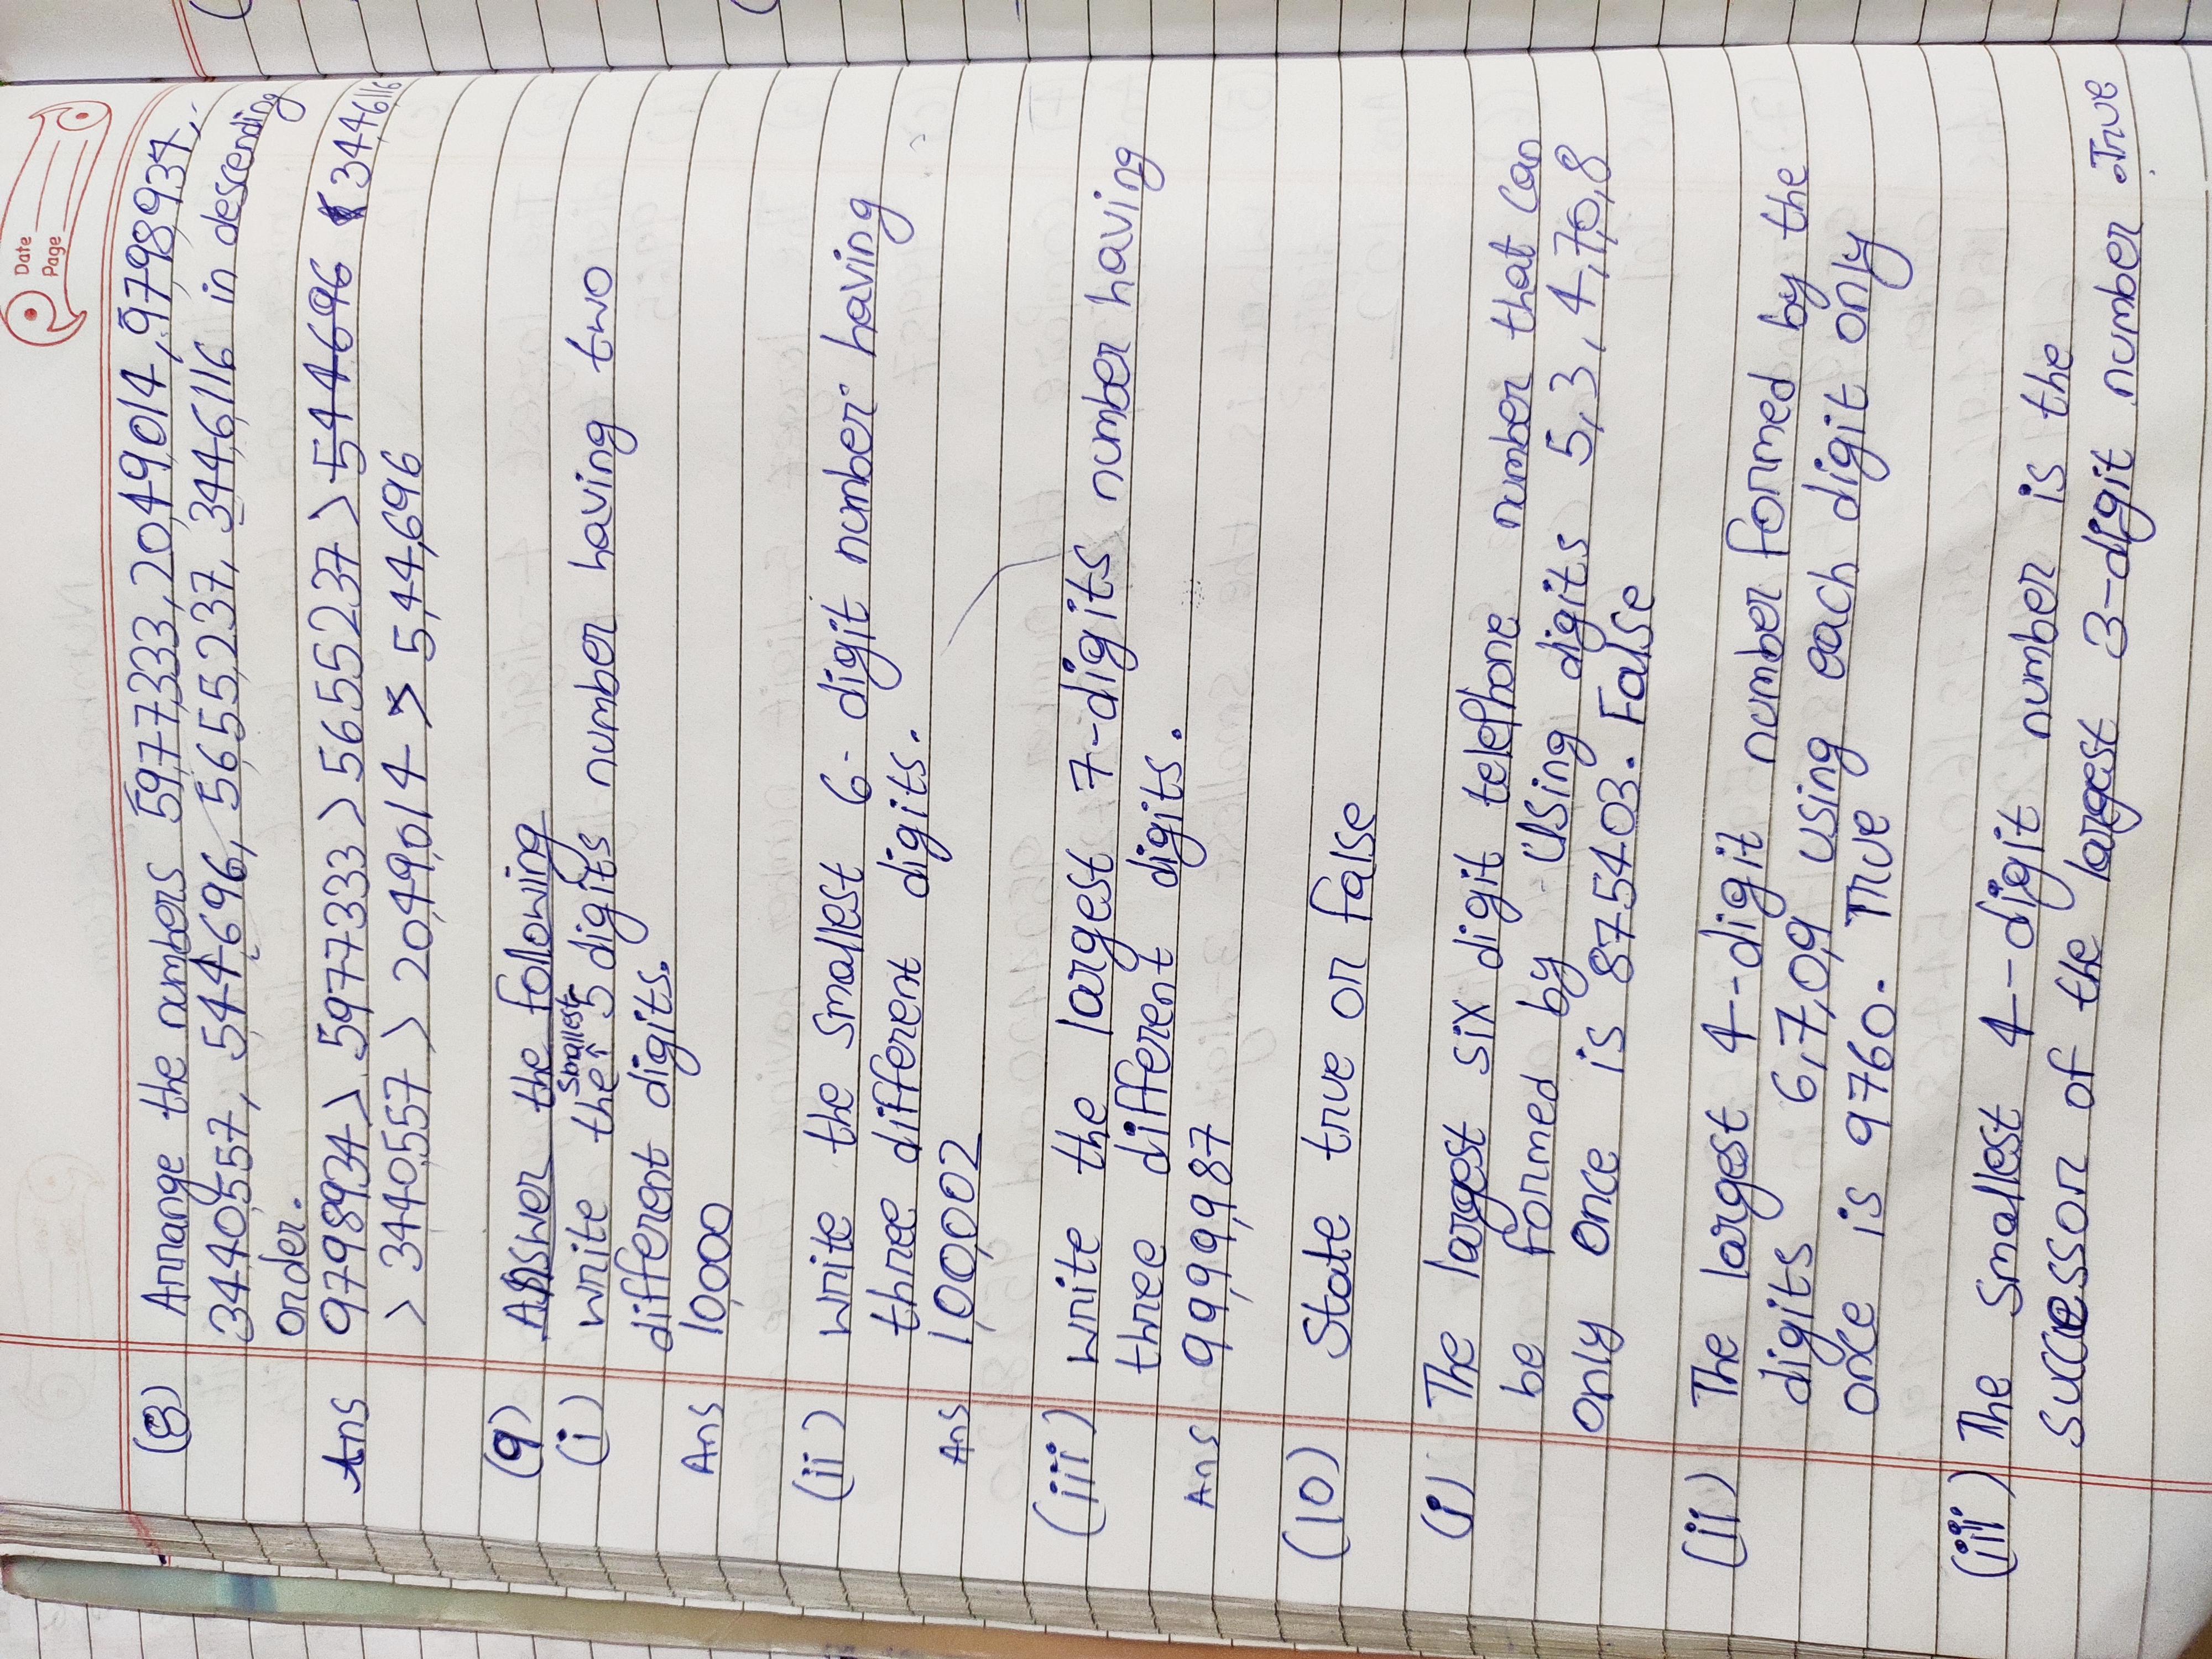 Date
Page
(8) Arrange the numbers 5977333, 2049014, 9798934,
3440557, 544696, 5655237, 3446116 in descending
order.
Ans 9798934 > 5977333 > 5655237 > 544696 3446116
> 3440557 > 2049014 > 544,696
(9) Answer the following
(i) write the smallest 5 digits number having two
different digits.
Ans 10,000
(ii) write the smallest 6-digit number having
three different digits.
Ans 1,00,002
(iii) write the largest 7-digits number having
three different digits.
Ans 99,99,987
(10) State true or false
(i) The largest six digit telephone number that can
be formed by using digits 5,3,4,7,0,8
only once is 875403. False
(ii) The largest 4-digit number formed by the
digits 6,7,0,9 using each digit only
once is 9760. True
(iii) The smallest 4-digit number is the
successor of the largest 3-digit number. True